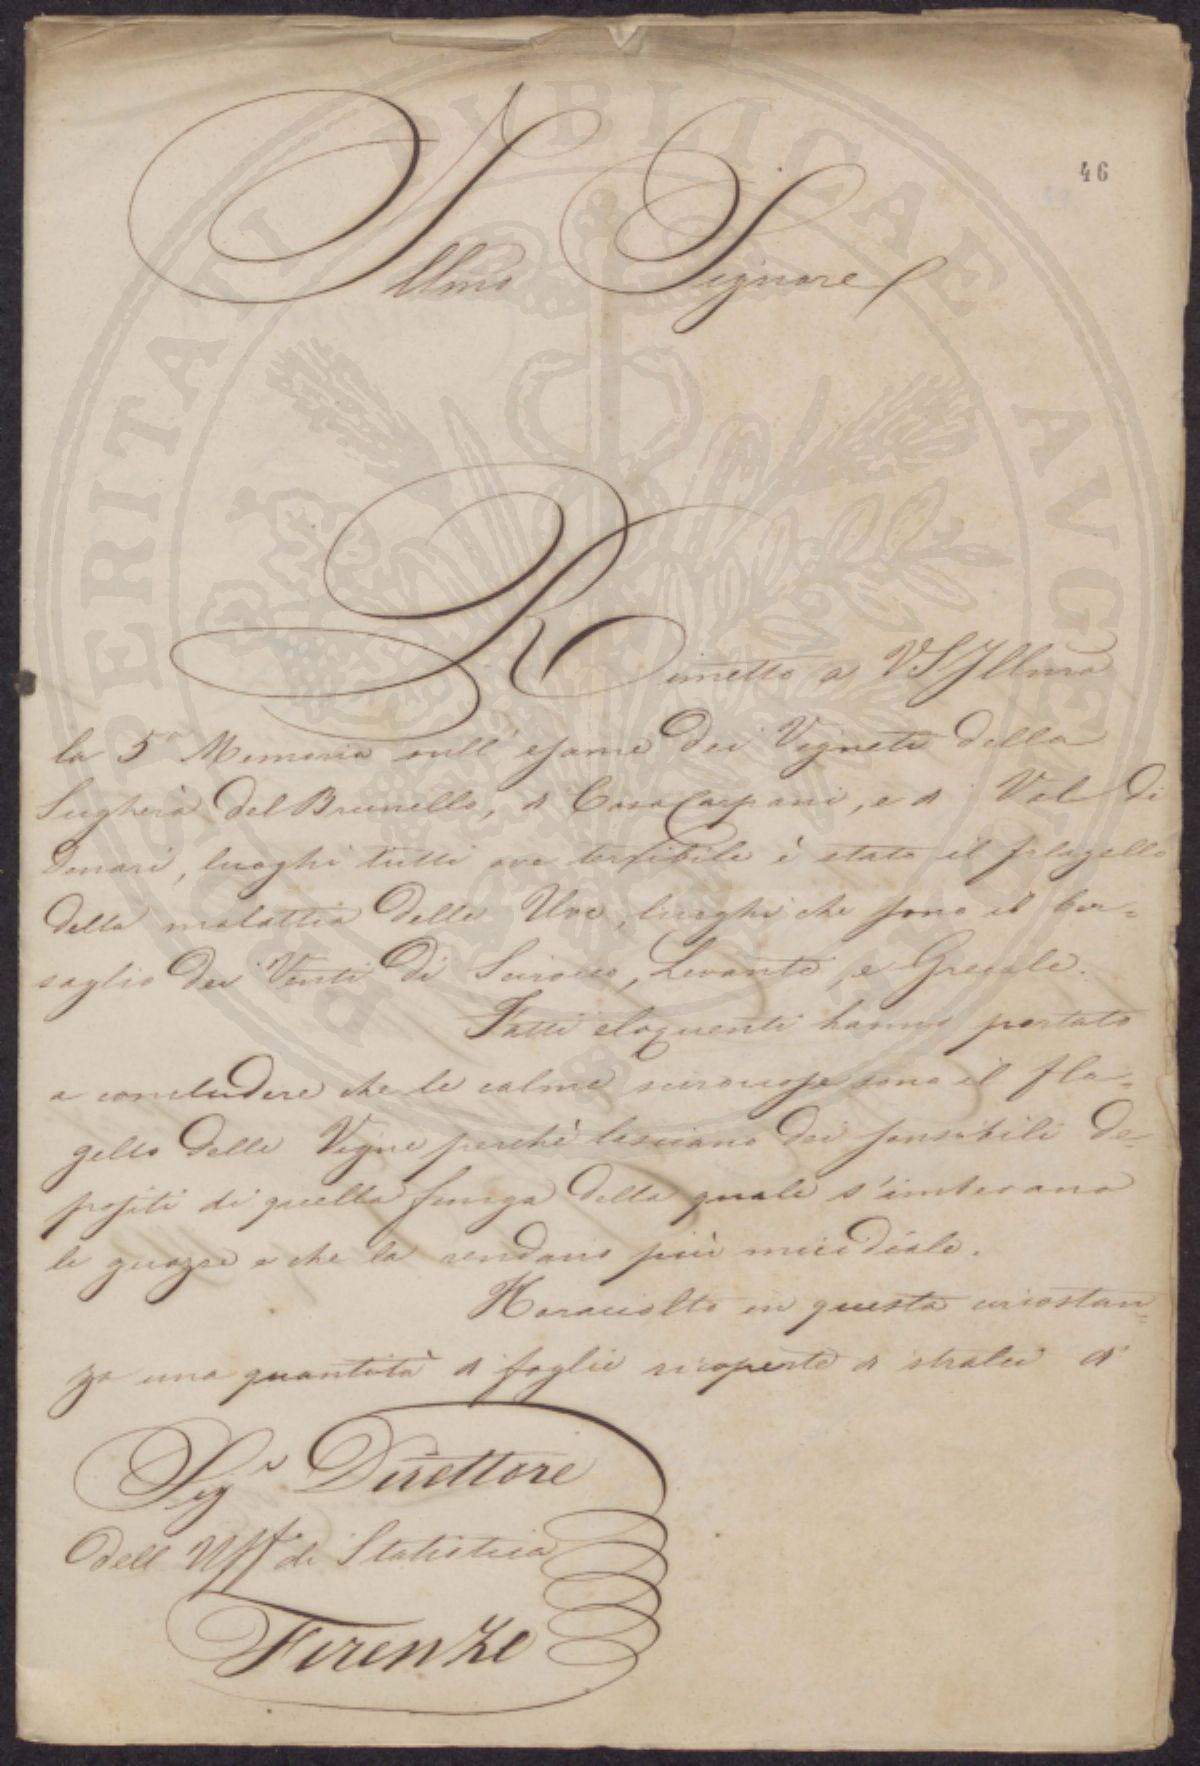 46
Illmo Signore
Rimetto a VS Illma
la 5a Memoria sull'esame dei Vigneti della
Sughera del Brunello, a Casa Carpani, e a Val di
Denari, luoghi tutti ove terribile è stato il flagello
della malattia delle Uve, luoghi che sono il ber=
saglio dei Venti di Scirocco, Levante, e Grecale.
Fatti eloquenti hanno portato
a concludere che le calme sciroccose sono il fla=
gello delle Vigne perchè lasciano dei sensibili de=
positi di quella funga della quale s'imbevano
le guazze e che la rendono più micidiale.
Ho raccolto in questa circostan=
za una quantità di foglie ricoperte di stralci di
Sigr Direttore
dell Uff di Statistica
Firenze
PROSPERITATI PVBLICAE AVGENDAE